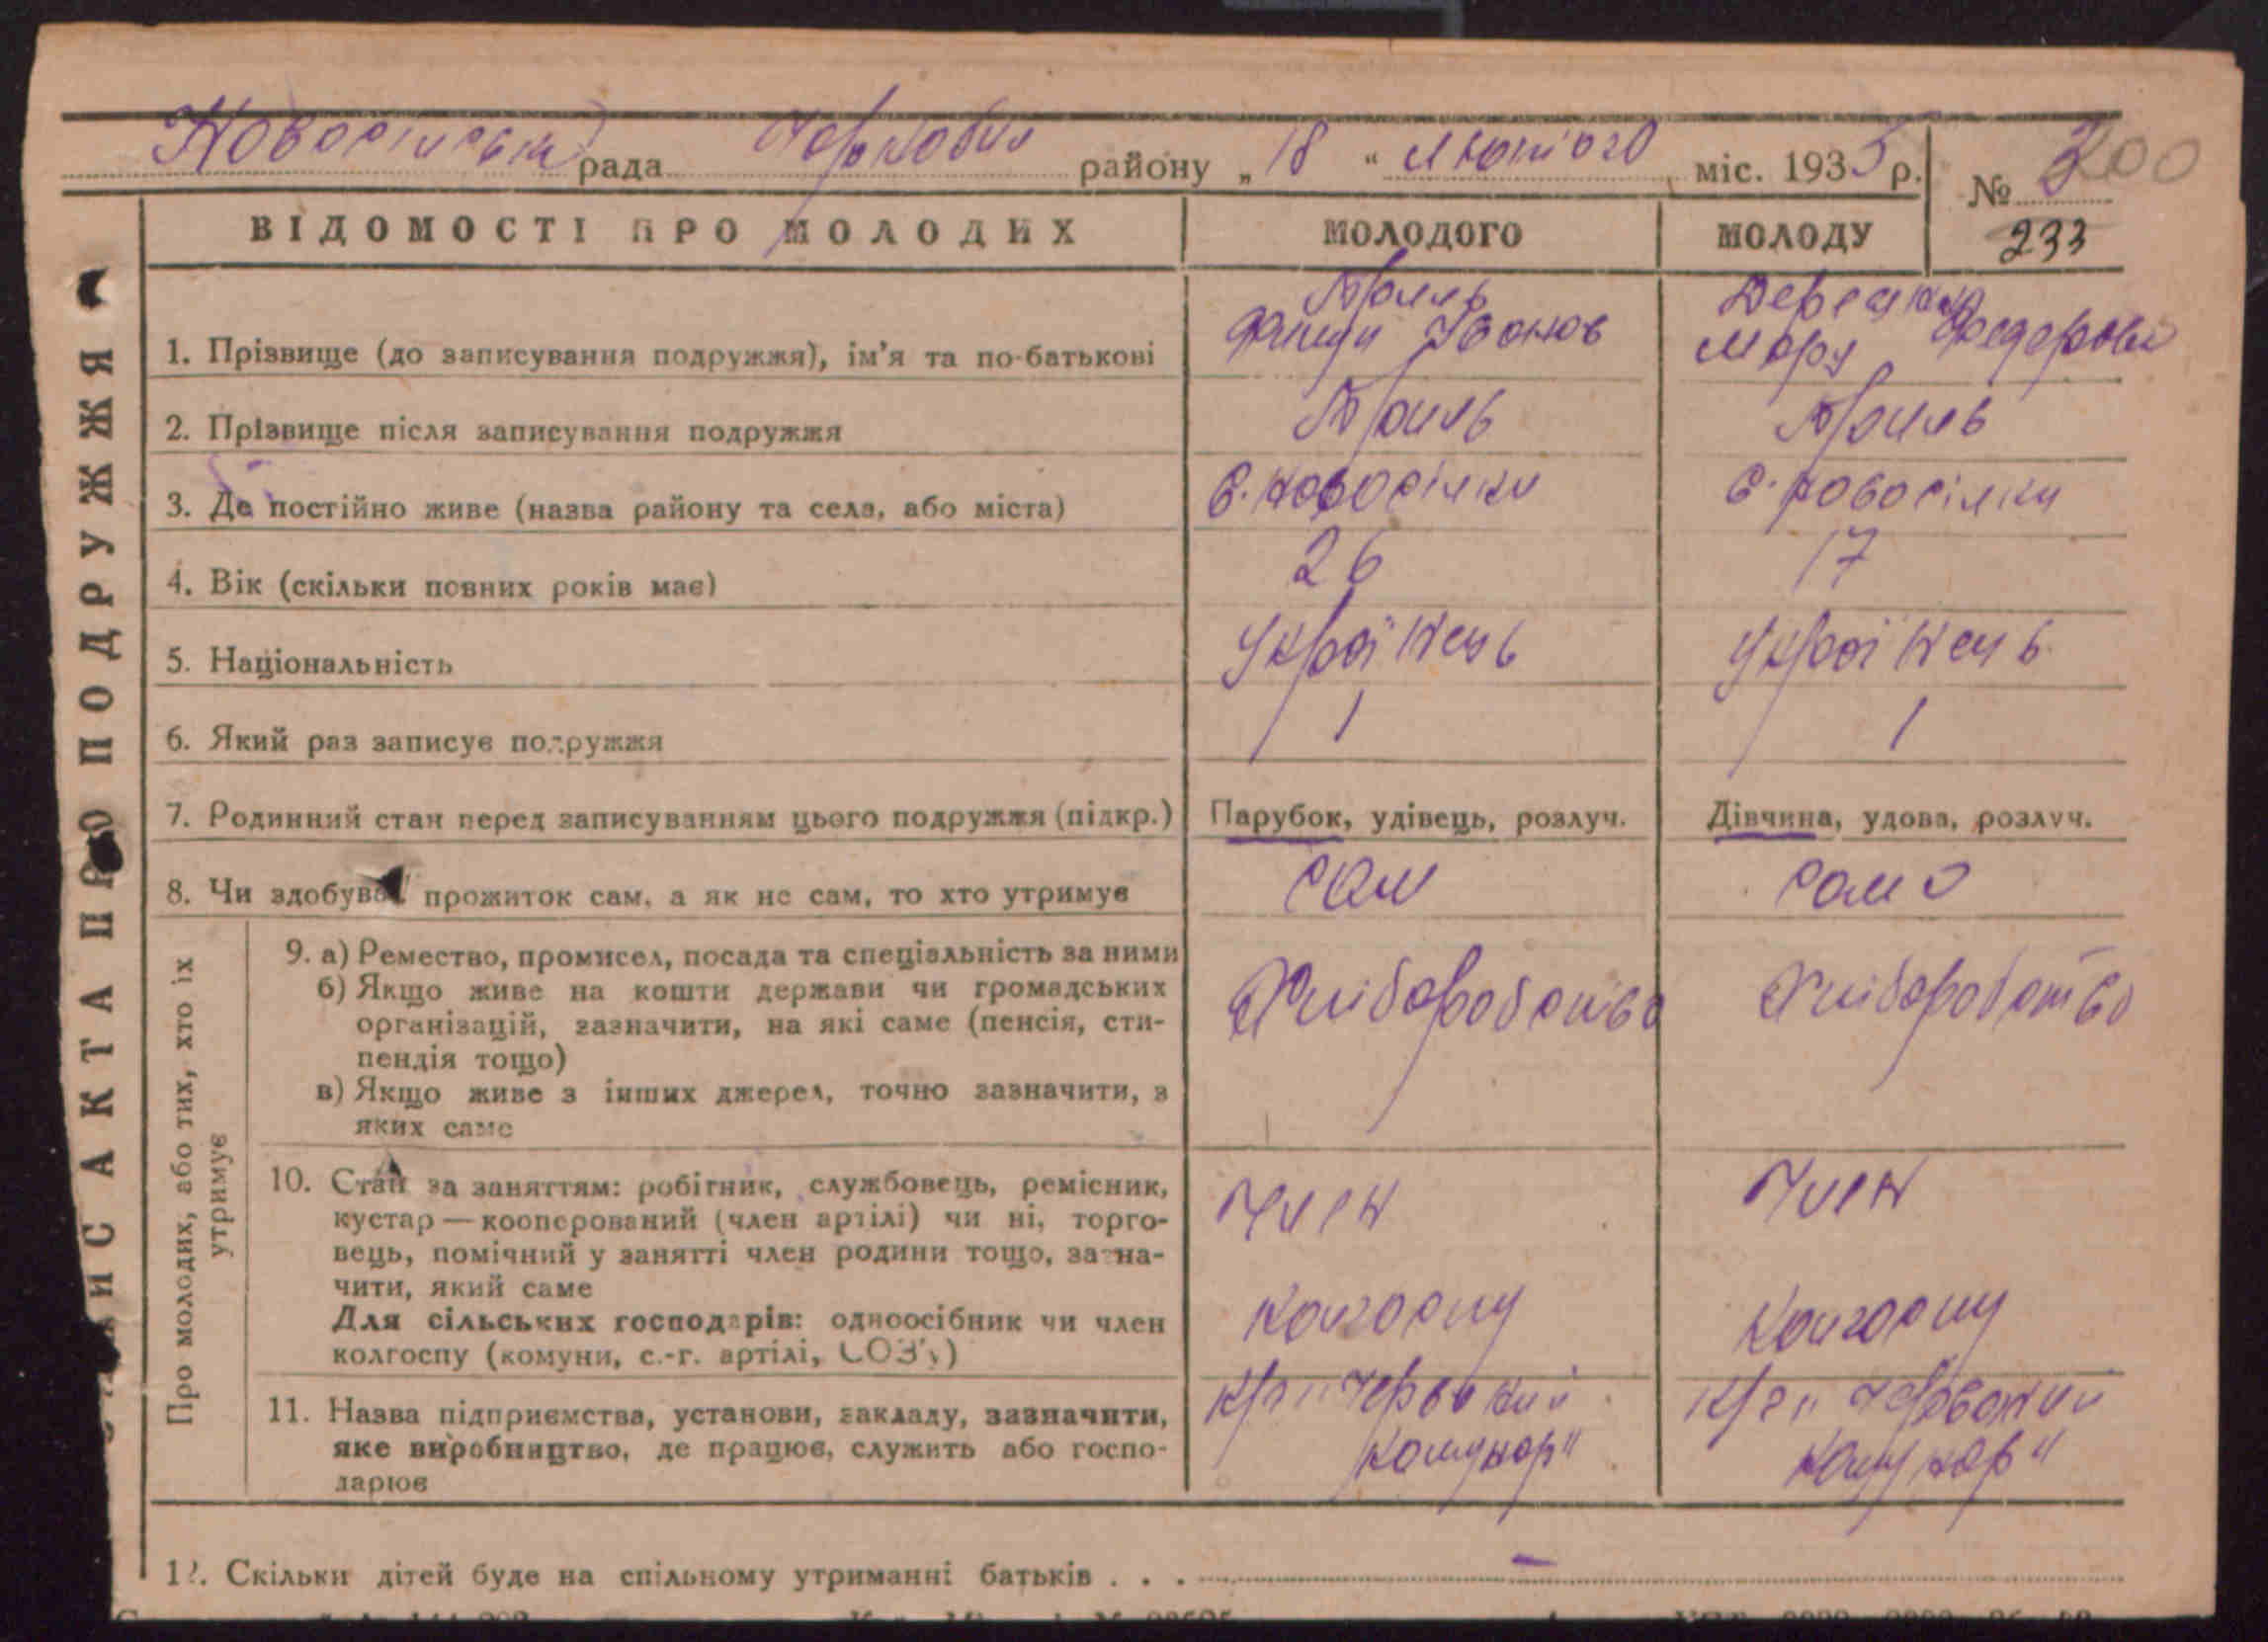 рада района „ 18 “ лютого міс. 1935 р.
№ 3 200
233
ЗАПИС АКТА ПРО ПОДРУЖЖЯ
ВІДОМОСТІ ПРО МОЛОДИХ МОЛОДОГО МОЛОДУ
1. Прізвище (до записування подружжя), ім’я та по-батькові
Іванов
Федеров
2. Прізвище після записування подружжя
3. Де постійно живе (назва району та села, або міста) с. Новосілки с. Новосілки
4. Вік (скільки повних років має) 26 17
5. Національність Українець Українець
6. Який раз записує подружжя 1 1
7. Родинний стан перед записуванням цього подружжя (підкр.) Парубок, удівець, розлуч. Дівчина, удова, розлуч.
8. Чи здобував прожиток сам, а як не сам, то хто утримує сам сама
Про молодих, або тих, хто їх
утримує
9. а) Ремество, промисел, посада та спеціальність за ними
б) Якщо живе на кошти держави чи громадських
організацій, зазначити, на які саме (пенсія, сти-
пендія тощо)
в) Якщо живе з інших джерел, точно зазначити, з
яких саме
Хліборобство Хліборобство
10. Стан за заняттям: робітник, службовець, ремісник,
кустар — кооперований (член артілі) чи ні, торго-
вець, помічний у занятті член родини тощо, зазна-
чити, який саме
Для сільських господарів: одноосібник чи член
колгоспу (комуни, с.-г. артілі, СОЗ’у)
Член Член
Колгоспу Колгоспу
11. Назва підприємства, установи, закладу, зазначити,
яке виробництво, де працює, служить або госпо-
дарює
Комунар" Червоний
Комунар"
12. Скільки дітей буде на спільному утриманні батьків . . . —